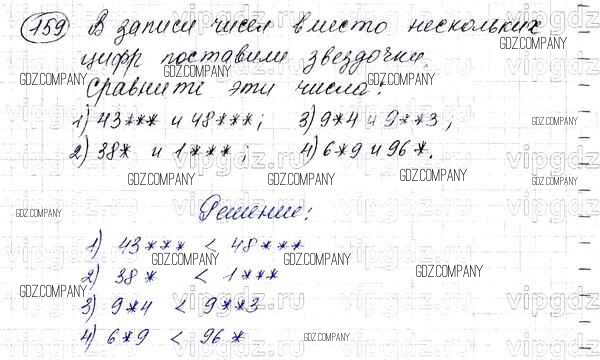 159 В записи чисел вместо нескольких
цифр поставили звездочки.
Сравните эти числа:
1) 43*** и 48***; 3) 9*4 и 9**3;
2) 38* и 1***; 4) 6*9 и 96*.
Решение:
1) 43*** < 48***
2) 38* < 1***
3) 9*4 < 9**3
4) 6*9 < 96*
GDZ.COMPANY
GDZ.COMPANY
GDZ.COMPANY
GDZ.COMPANY
GDZ.COMPANY
GDZ.COMPANY
GDZ.COMPANY
GDZ.COMPANY
GDZ.COMPANY
GDZ.COMPANY
GDZ.COMPANY
GDZ.COMPANY
GDZ.COMPANY
GDZ.COMPANY
vipgdz.ru
vipgdz.ru
vipgdz.ru
vipgdz.ru